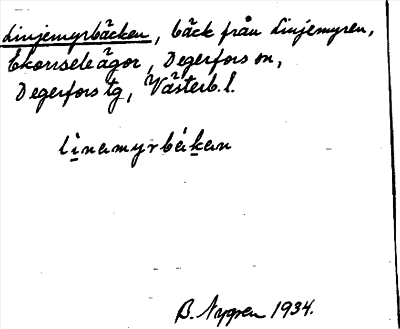 Linjemyrbäcken, bäck från Linjemyren,
Ekorrsele ägor, Degerfors sn,
Degerfors tg, Västerb. l.
linamyrbäkan
B. Nygren 1934.